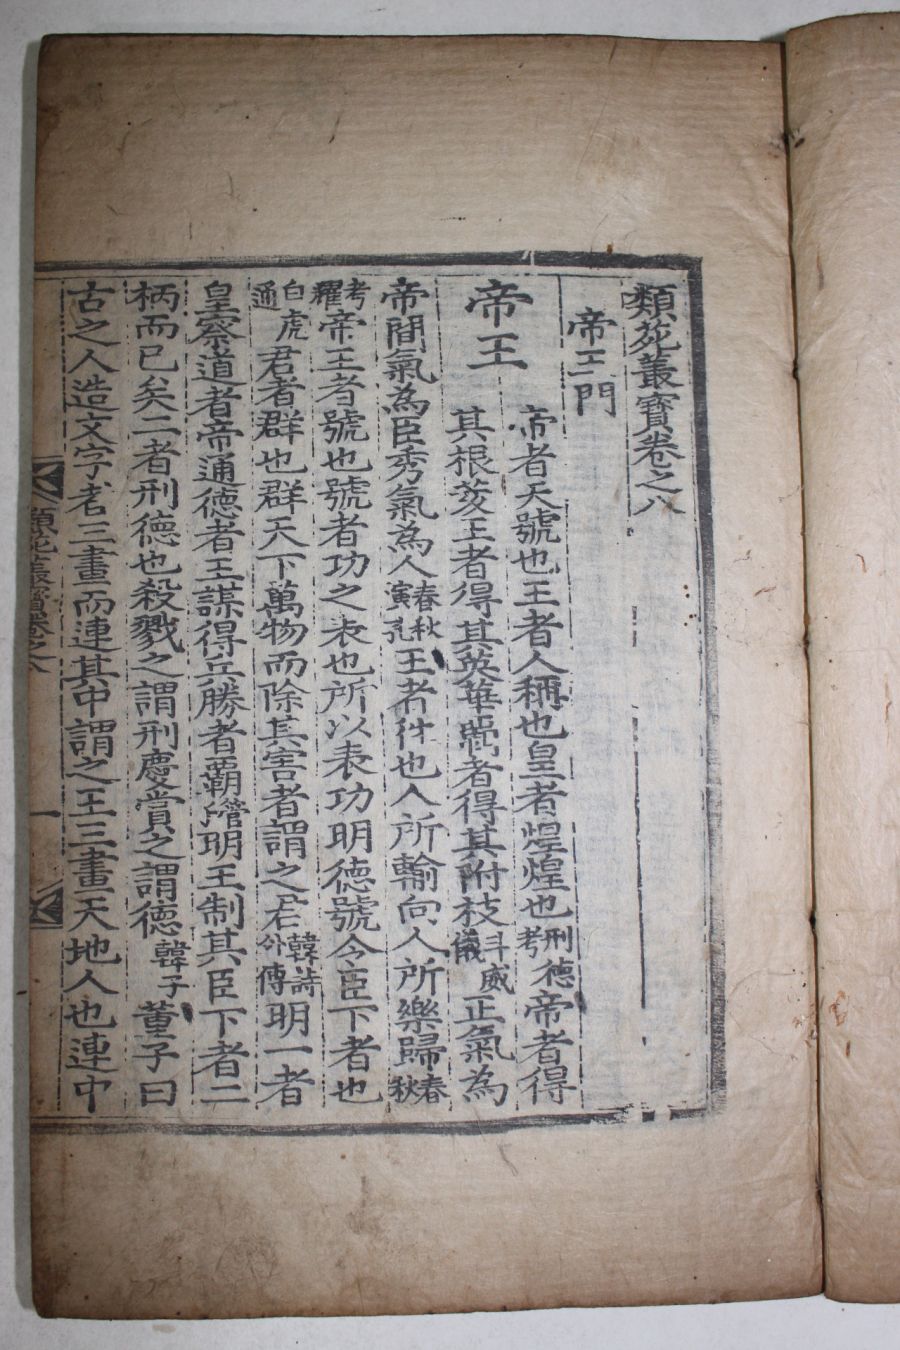 類苑叢寶卷之八
帝王門
帝王 帝者天號也王者人稱也皇者煌煌也刑德考帝者得
其根荄王者得其英華覇者得其附枝斗威儀正氣為
帝間氣為臣秀氣為人春秋演孔王者往也人所輸向人所樂歸春秋
考耀帝王者號也號者功之表也所以表功明德號令臣下者也
白虎通君者群也群天下萬物而除其害者謂之君韓詩外傳明一者
皇察道者帝通德者王謀得兵勝者覇管明王制其臣下者二
柄而已矣二者刑德也殺戮之謂刑慶賞之謂德韓子董子曰
古之人造文字者三畫而連其中謂之王三畫天地人也連中
類苑叢寶卷之八
一